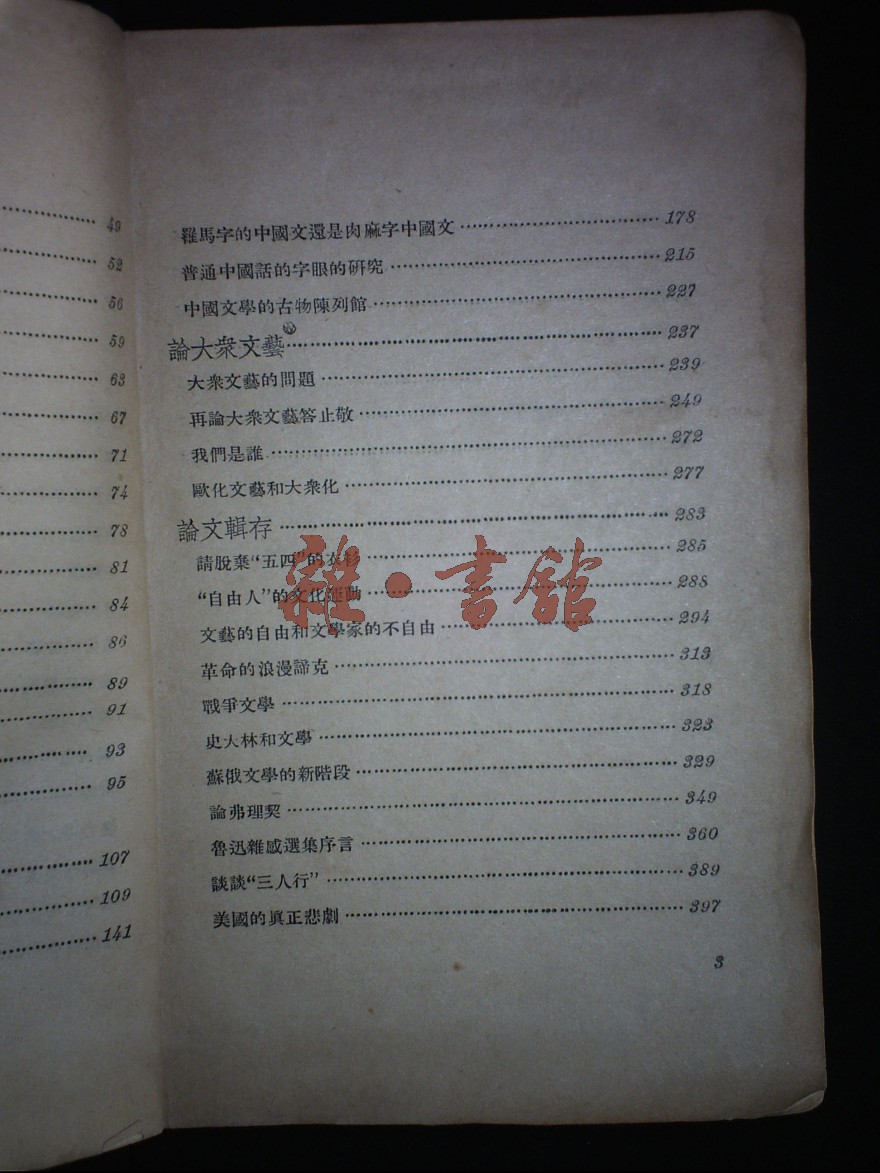 49
52
56
59
63
67
71
74
78
81
84
86
89
91
93
95
107
109
141
羅馬字的中國文還是肉麻字中國文 178
普通中國話的字眼的研究 215
中國文學的古物陳列館 227
論大衆文藝 237
大衆文藝的問題 239
再論大衆文藝答止敬 249
我們是誰 272
歐化文藝和大衆化 277
論文輯存 283
請脫棄“五四”的衣衫 285
“自由人”的文化運動 288
文藝的自由和文學家的不自由 294
革命的浪漫諦克 313
戰爭文學 318
史大林和文學 323
蘇俄文學的新階段 329
論弗理契 349
魯迅雜感選集序言 360
談談“三人行” 389
美國的眞正悲劇 397
3
雜·書館